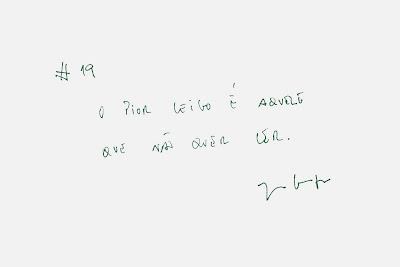 # 19
O PIOR LEIGO É AQUELE
QUE NÃO QUER LER.